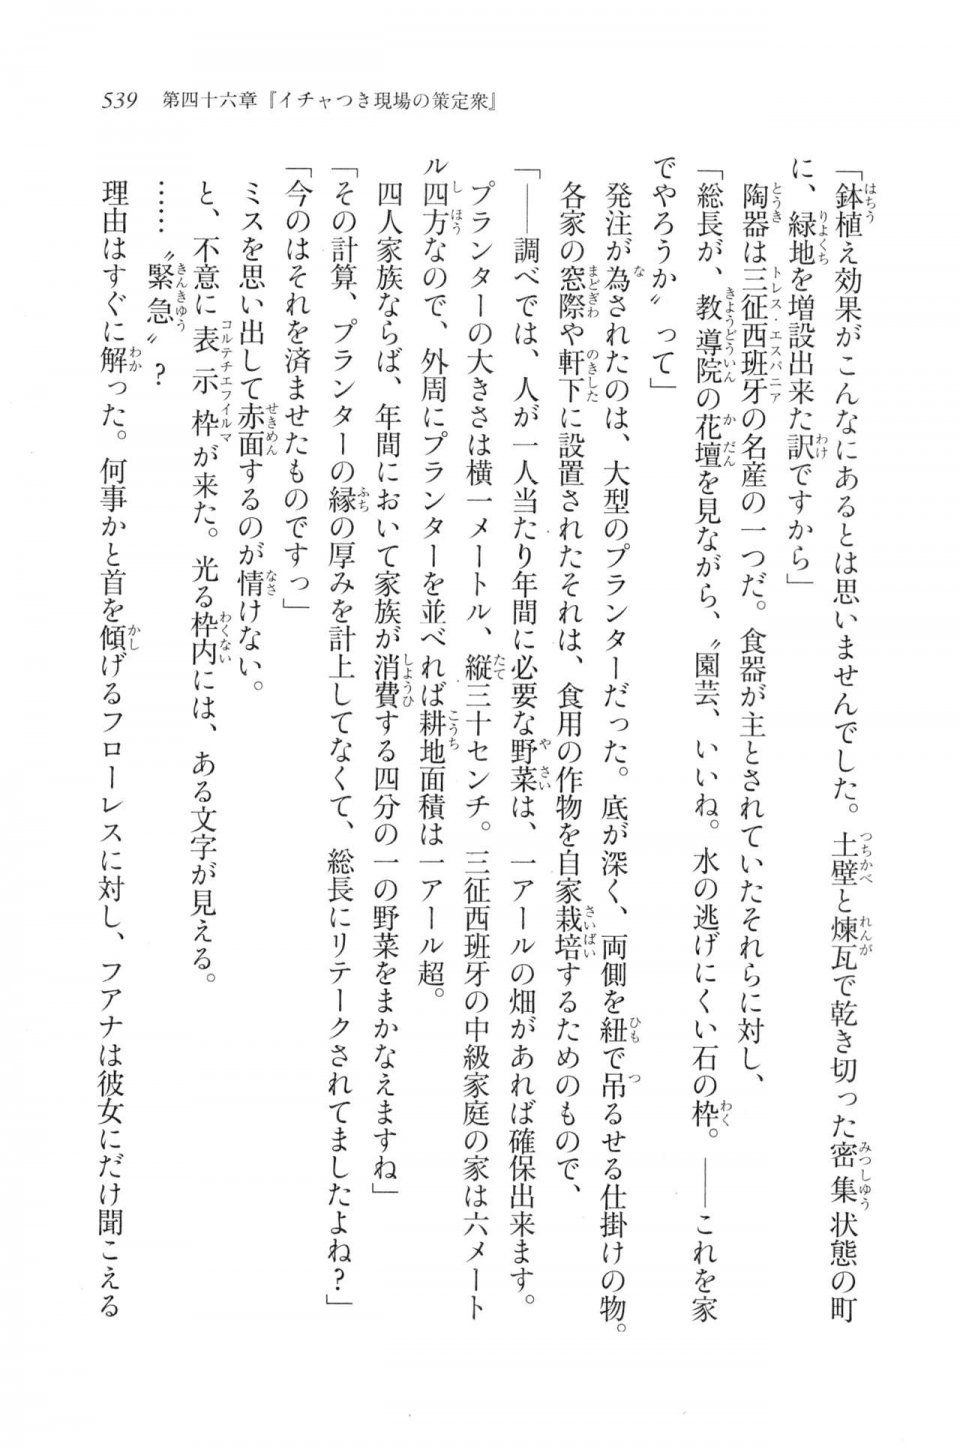 539　第四十六章『イチャつき現場の策定衆』
「鉢植え効果がこんなにあるとは思いませんでした。土壁と煉瓦で乾き切った密集状態の町
に、緑地を増設出来た訳ですから」
陶器は三征西班牙の名産の一つだ。食器が主とされていたそれらに対し、
「総長が、教導院の花壇を見ながら、〝園芸、いいね。水の逃げにくい石の枠。――これを家
でやろうか〟って」
発注が為されたのは、大型のプランターだった。底が深く、両側を紐で吊るせる仕掛けの物。
各家の窓際や軒下に設置されたそれは、食用の作物を自家栽培するためのもので、
「――調べでは、人が一人当たり年間に必要な野菜は、一アールの畑があれば確保出来ます。
プランターの大きさは横一メートル、縦三十センチ。三征西班牙の中級家庭の家は六メート
ル四方なので、外周にプランターを並べれば耕地面積は一アール超。
四人家族ならば、年間において家族が消費する四分の一の野菜をまかなえますね」
「その計算、プランターの縁の厚みを計上してなくて、総長にリテークされてましたよね？」
「今のはそれを済ませたものですっ」
ミスを思い出して赤面するのが情けない。
と、不意に表示枠が来た。光る枠内には、ある文字が見える。
……〝緊急〟？
理由はすぐに解った。何事かと首を傾げるフローレスに対し、フアナは彼女にだけ聞こえる